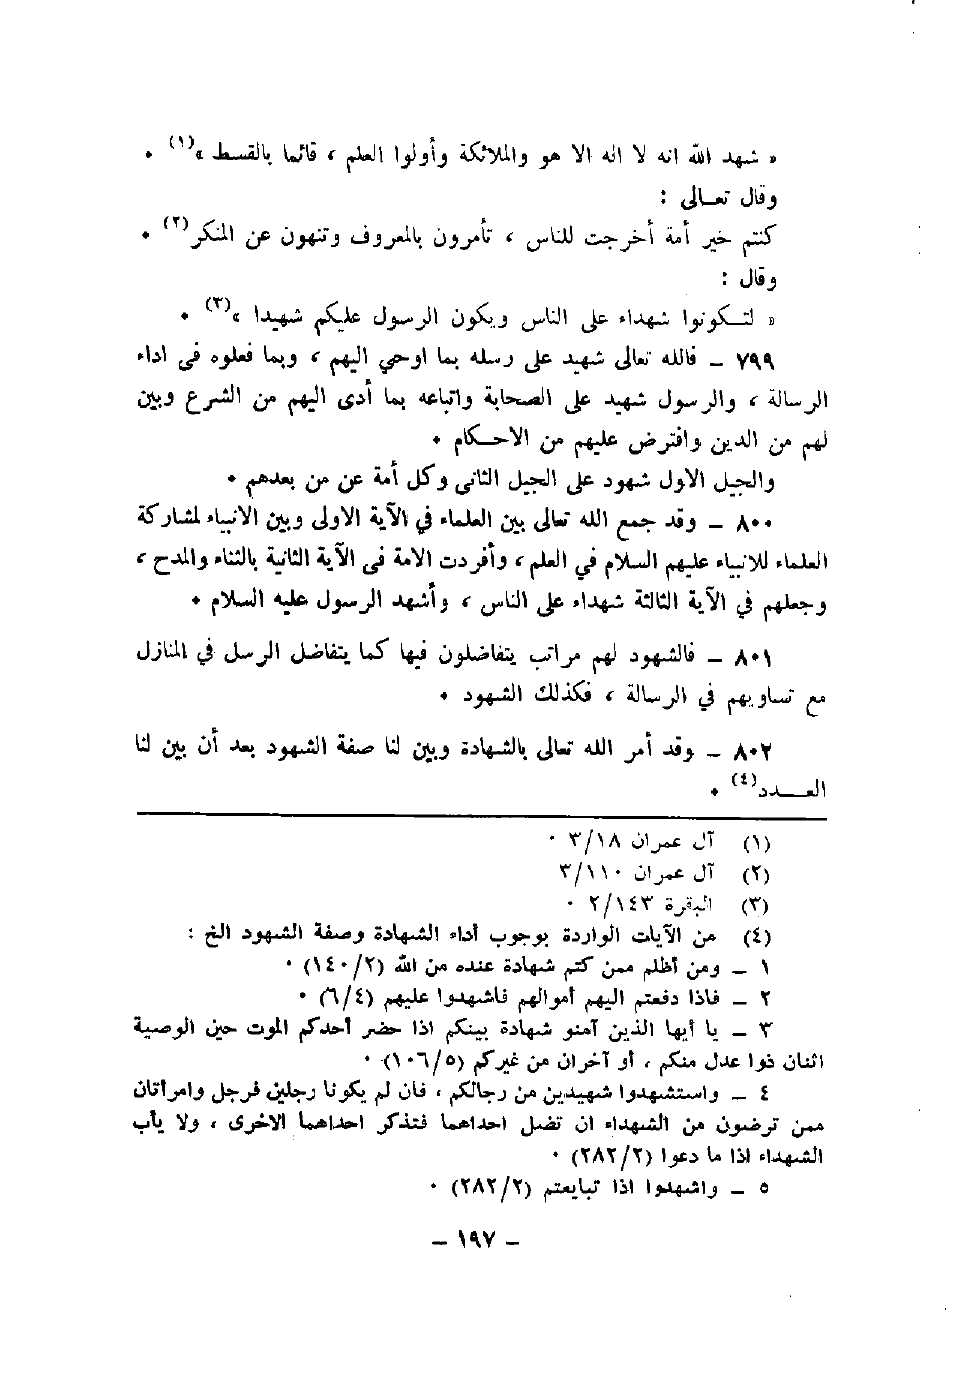 « شهد الله انه لا اله الا هو والملائكة وأولوا العلم ، قائما بالقسط »(١) .
وقال تعـالى :
كنتم خير أمة أخرجت للناس ، تأمرون بالمعروف وتنهون عن المنكر(٢) .
وقال :
« لتـكونوا شهداء على الناس ويكون الرسول عليكم شهيدا »(٣) .
٧٩٩ ـ فالله تعالى شهيد على رسله بما اوحي اليهم ، وبما فعلوه فى اداء
الرسالة ، والرسول شهيد على الصحابة واتباعه بما أدى اليهم من الشرع وبين
لهم من الدين وافترض عليهم من الاحـكام .
والجيل الاول شهود على الجيل الثانى وكل أمة عن من بعدهم .
٨٠٠ ـ وقد جمع الله تعالى بين العلماء في الآية الاولى وبين الانبياء لمشاركة
العلماء للانبياء عليهم السلام في العلم ، وأفردت الامة فى الآية الثانية بالثناء والمدح ،
وجعلهم في الآية الثالثة شهداء على الناس ، وأشهد الرسول عليه السلام .
٨٠١ ـ فالشهود لهم مراتب يتفاضلون فيها كما يتفاضل الرسل في المنازل
مع تساويهم في الرسالة ، فكذلك الشهود .
٨٠٢ ـ وقد أمر الله تعالى بالشهادة وبين لنا صفة الشهود بعد أن بين لنا
العـــدد(٤) .
(١) آل عمران ٣/١٨ .
(٢) آل عمران ٣/١١٠
(٣) البقرة ٢/١٤٣ .
(٤) من الآيات الواردة بوجوب أداء الشهادة وصفة الشهود الخ :
١ ـ ومن أظلم ممن كتم شهادة عنده من الله (١٤٠/٢) .
٢ ـ فاذا دفعتم اليهم أموالهم فاشهدوا عليهم (٦/٤) .
٣ ـ يا أيها الذين آمنو شهادة بينكم اذا حضر أحدكم الموت حين الوصية
اثنان ذوا عدل منكم ، أو آخران من غيركم (١٠٦/٥) .
٤ ـ واستشهدوا شهيدين من رجالكم ، فان لم يكونا رجلين فرجل وامرأتان
ممن ترضون من الشهداء ان تضل احداهما فتذكر احداهما الاخرى ، ولا يأب
الشهداء اذا ما دعوا (٢٨٢/٢) .
٥ ـ واشهدوا اذا تبايعتم (٢٨٢/٢) .
ـ ١٩٧ ـ